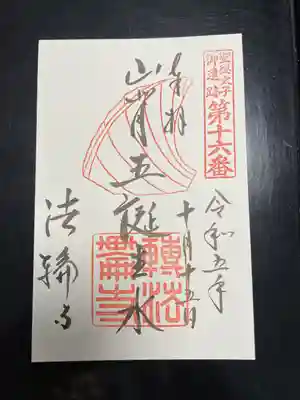 聖徳太子
御遺跡
第十六番
奉拝
令和五年
十月十五日
山背王誕生水
法輪寺